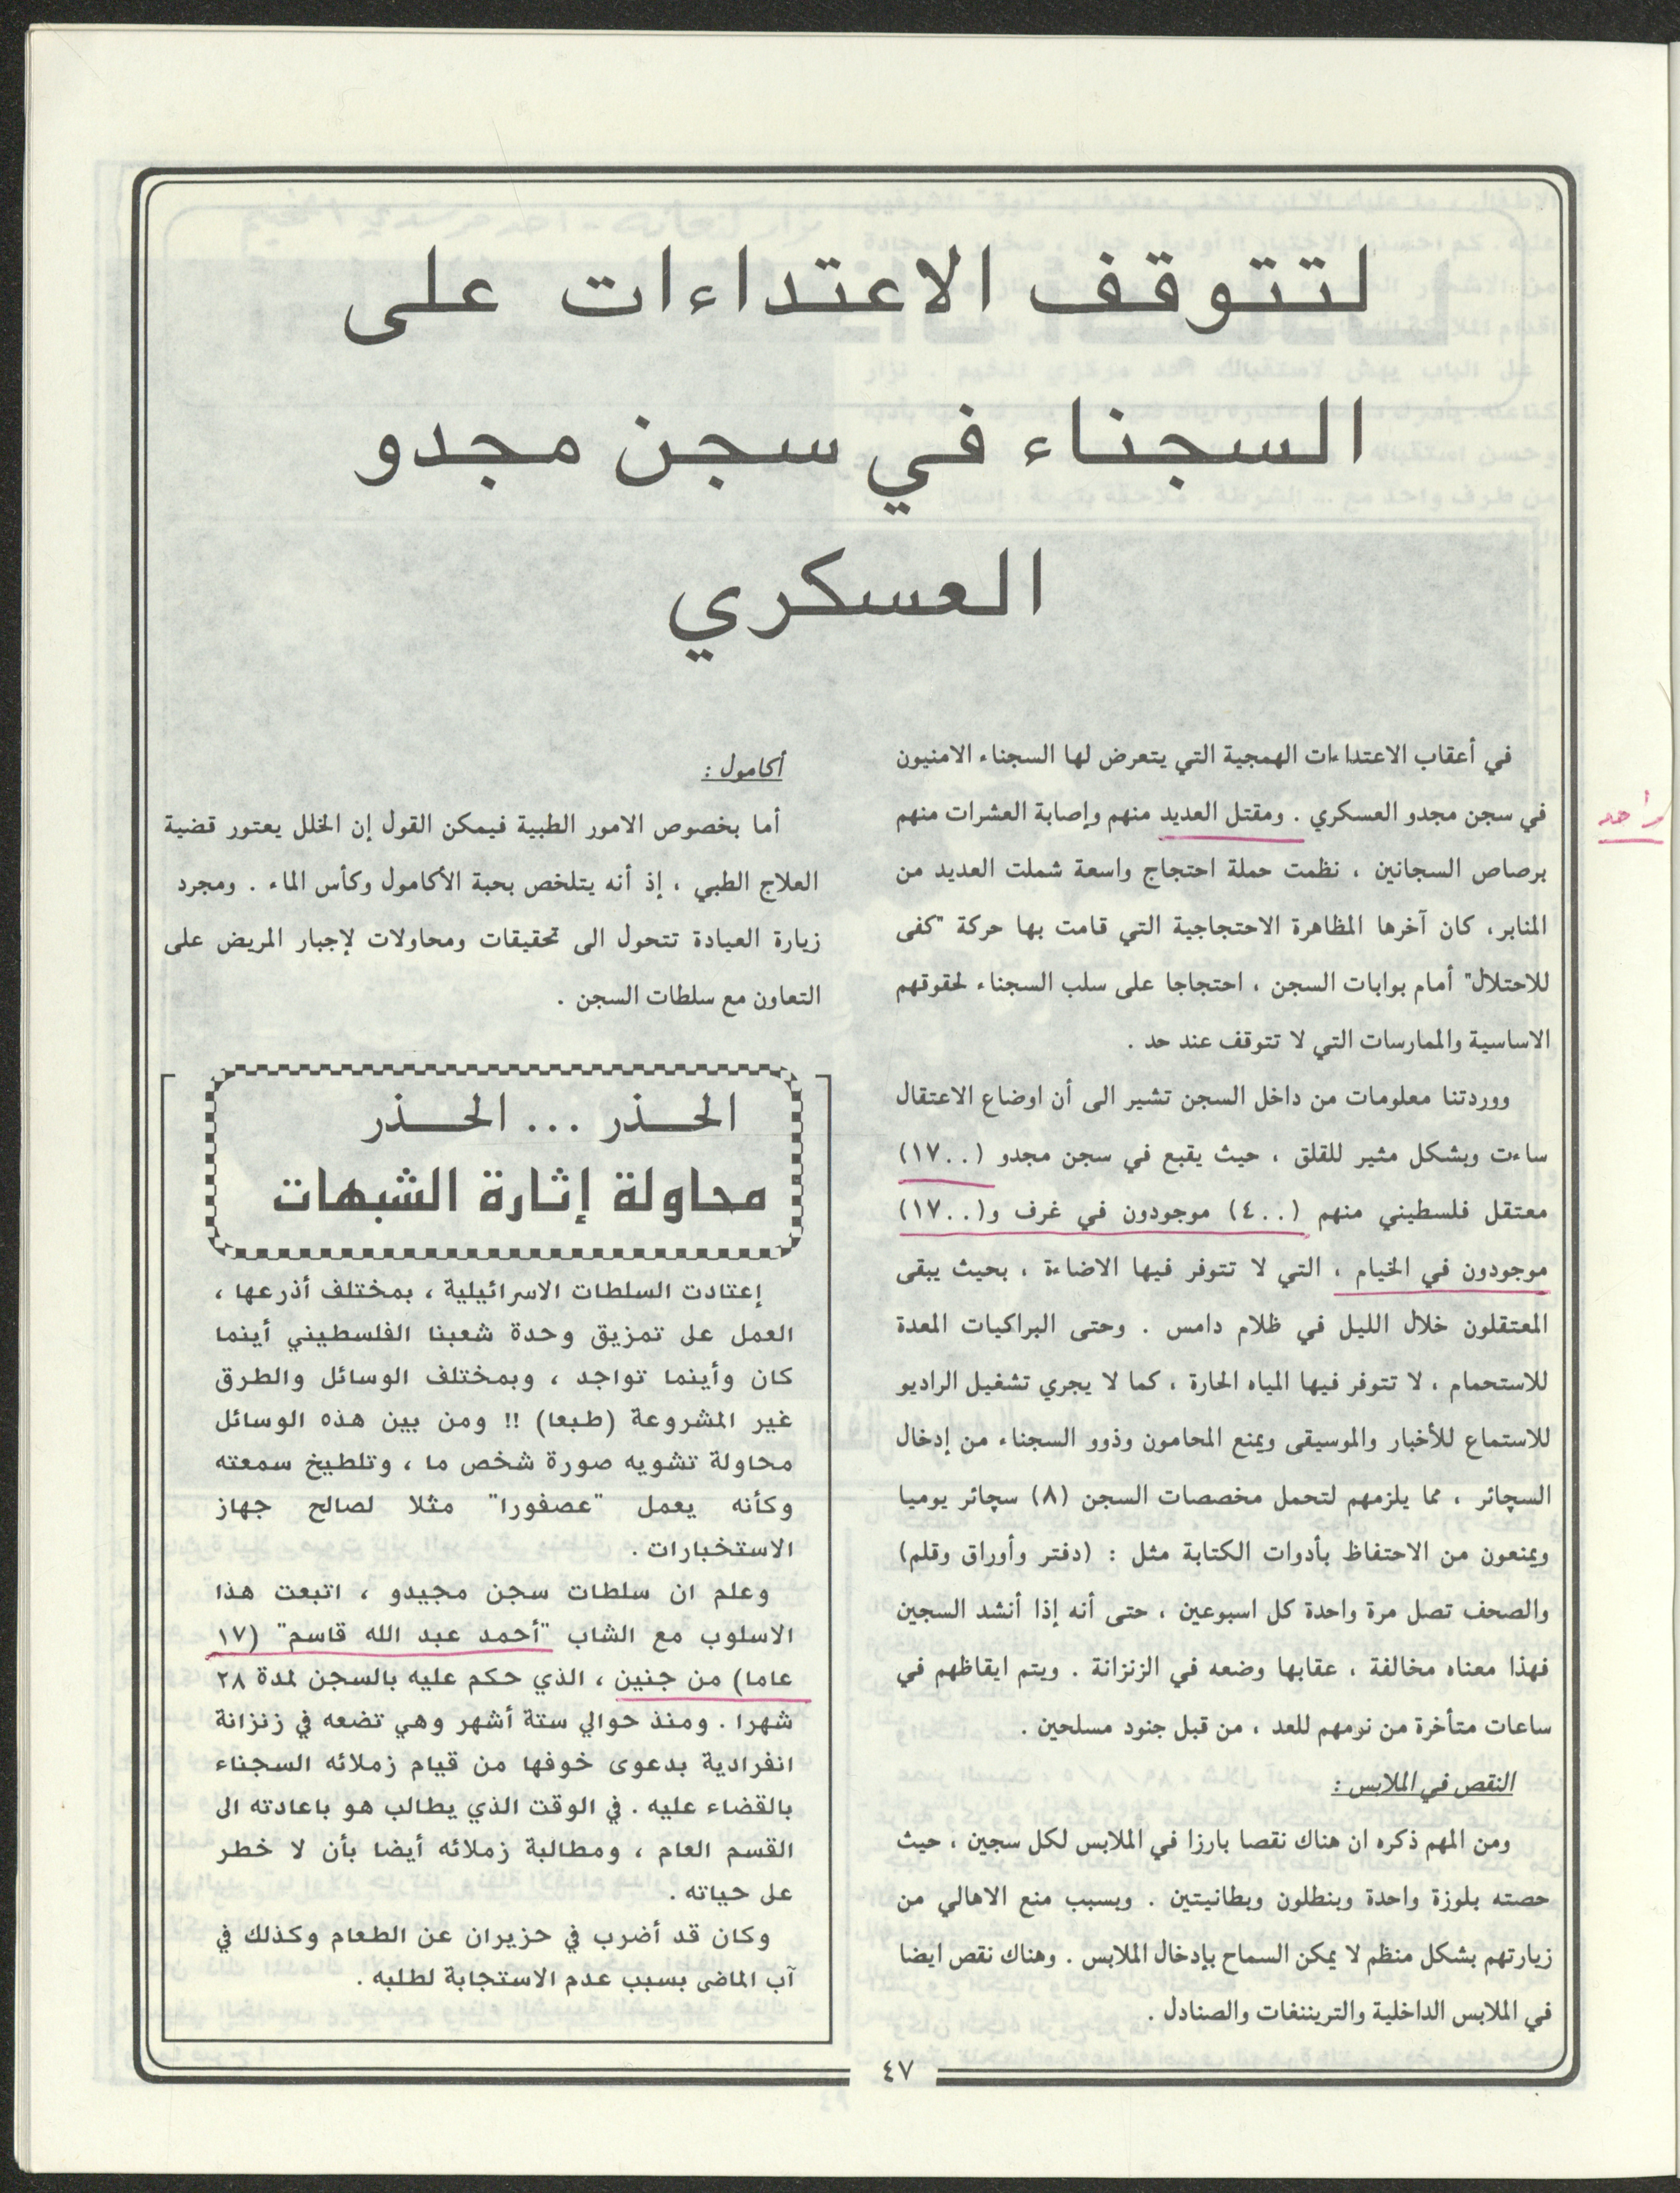 لتتوقف الاعتداءات على
السجناء في سجن مجدو
العسكري
في أعقاب الاعتداءات الهمجية التي يتعرض لها السجناء الامنيون
في سجن مجدو العسكري . ومقتل العديد منهم وإصابة العشرات منهم
برصاص السجانين ، نظمت حملة احتجاج واسعة شملت العديد من
المنابر، كان آخرها المظاهرة الاحتجاجية التي قامت بها حركة "كفى
للاحتلال" أمام بوابات السجن ، احتجاجا على سلب السجناء لحقوقهم
الاساسية والممارسات التي لا تتوقف عند حد .
ووردتنا معلومات من داخل السجن تشير الى أن اوضاع الاعتقال
ساءت وبشكل مثير للقلق ، حيث يقبع في سجن مجدو (١٧٠٠)
معتقل فلسطيني منهم (٤٠٠) موجودون في غرف و(١٧٠٠)
موجودون في الخيام ، التي لا تتوفر فيها الاضاءة ، بحيث يبقى
المعتقلون خلال الليل في ظلام دامس . وحتى البراكيات المعدة
للاستحمام ، لا تتوفر فيها المياه الحارة ، كما لا يجري تشغيل الراديو
للاستماع للأخبار والموسيقى ويمنع المحامون وذوو السجناء من إدخال
السچائر ، مما يلزمهم لتحمل مخصصات السجن (٨) سچائر يوميا
ويمنعون من الاحتفاظ بأدوات الكتابة مثل : (دفتر وأوراق وقلم)
والصحف تصل مرة واحدة كل اسبوعين ، حتى أنه إذا أنشد السجين
فهذا معناه مخالفة ، عقابها وضعه في الزنزانة . ويتم ايقاظهم في
ساعات متأخرة من نومهم للعد ، من قبل جنود مسلحين .
النقص في الملابس :
ومن المهم ذكره ان هناك نقصا بارزا في الملابس لكل سجين ، حيث
حصته بلوزة واحدة وبنطلون وبطانيتين . وبسبب منع الاهالي من
زيارتهم بشكل منظم لا يمكن السماح بإدخال الملابس . وهناك نقص ايضا
في الملابس الداخلية والتريننفات والصنادل .
واحد
أكامول :
أما بخصوص الامور الطبية فيمكن القول إن الخلل يعتور قضية
العلاج الطبي ، إذ أنه يتلخص بحبة الأكامول وكأس الماء . ومجرد
زيارة العيادة تتحول الى تحقيقات ومحاولات لإجبار المريض على
التعاون مع سلطات السجن .
الحـذر ... الحـذر
محاولة إثارة الشبهات
إعتادت السلطات الاسرائيلية ، بمختلف أذرعها ،
العمل على تمزيق وحدة شعبنا الفلسطيني أينما
كان وأينما تواجد ، وبمختلف الوسائل والطرق
غير المشروعة (طبعا) !! ومن بين هذه الوسائل
محاولة تشويه صورة شخص ما ، وتلطيخ سمعته
وكأنه يعمل "عصفورا" مثلا لصالح جهاز
الاستخبارات .
وعلم ان سلطات سجن مجيدو ، اتبعت هذا
الاسلوب مع الشاب "أحمد عبد الله قاسم" (١٧
عاما) من جنين ، الذي حكم عليه بالسجن لمدة ٢٨
شهرا . ومنذ حوالي ستة أشهر وهي تضعه في زنزانة
انفرادية بدعوى خوفها من قيام زملائه السجناء
بالقضاء عليه . في الوقت الذي يطالب هو باعادته الى
القسم العام ، ومطالبة زملائه أيضا بأن لا خطر
على حياته .
وكان قد أضرب في حزيران عن الطعام وكذلك في
آب الماضى بسبب عدم الاستجابة لطلبه .
٤٧